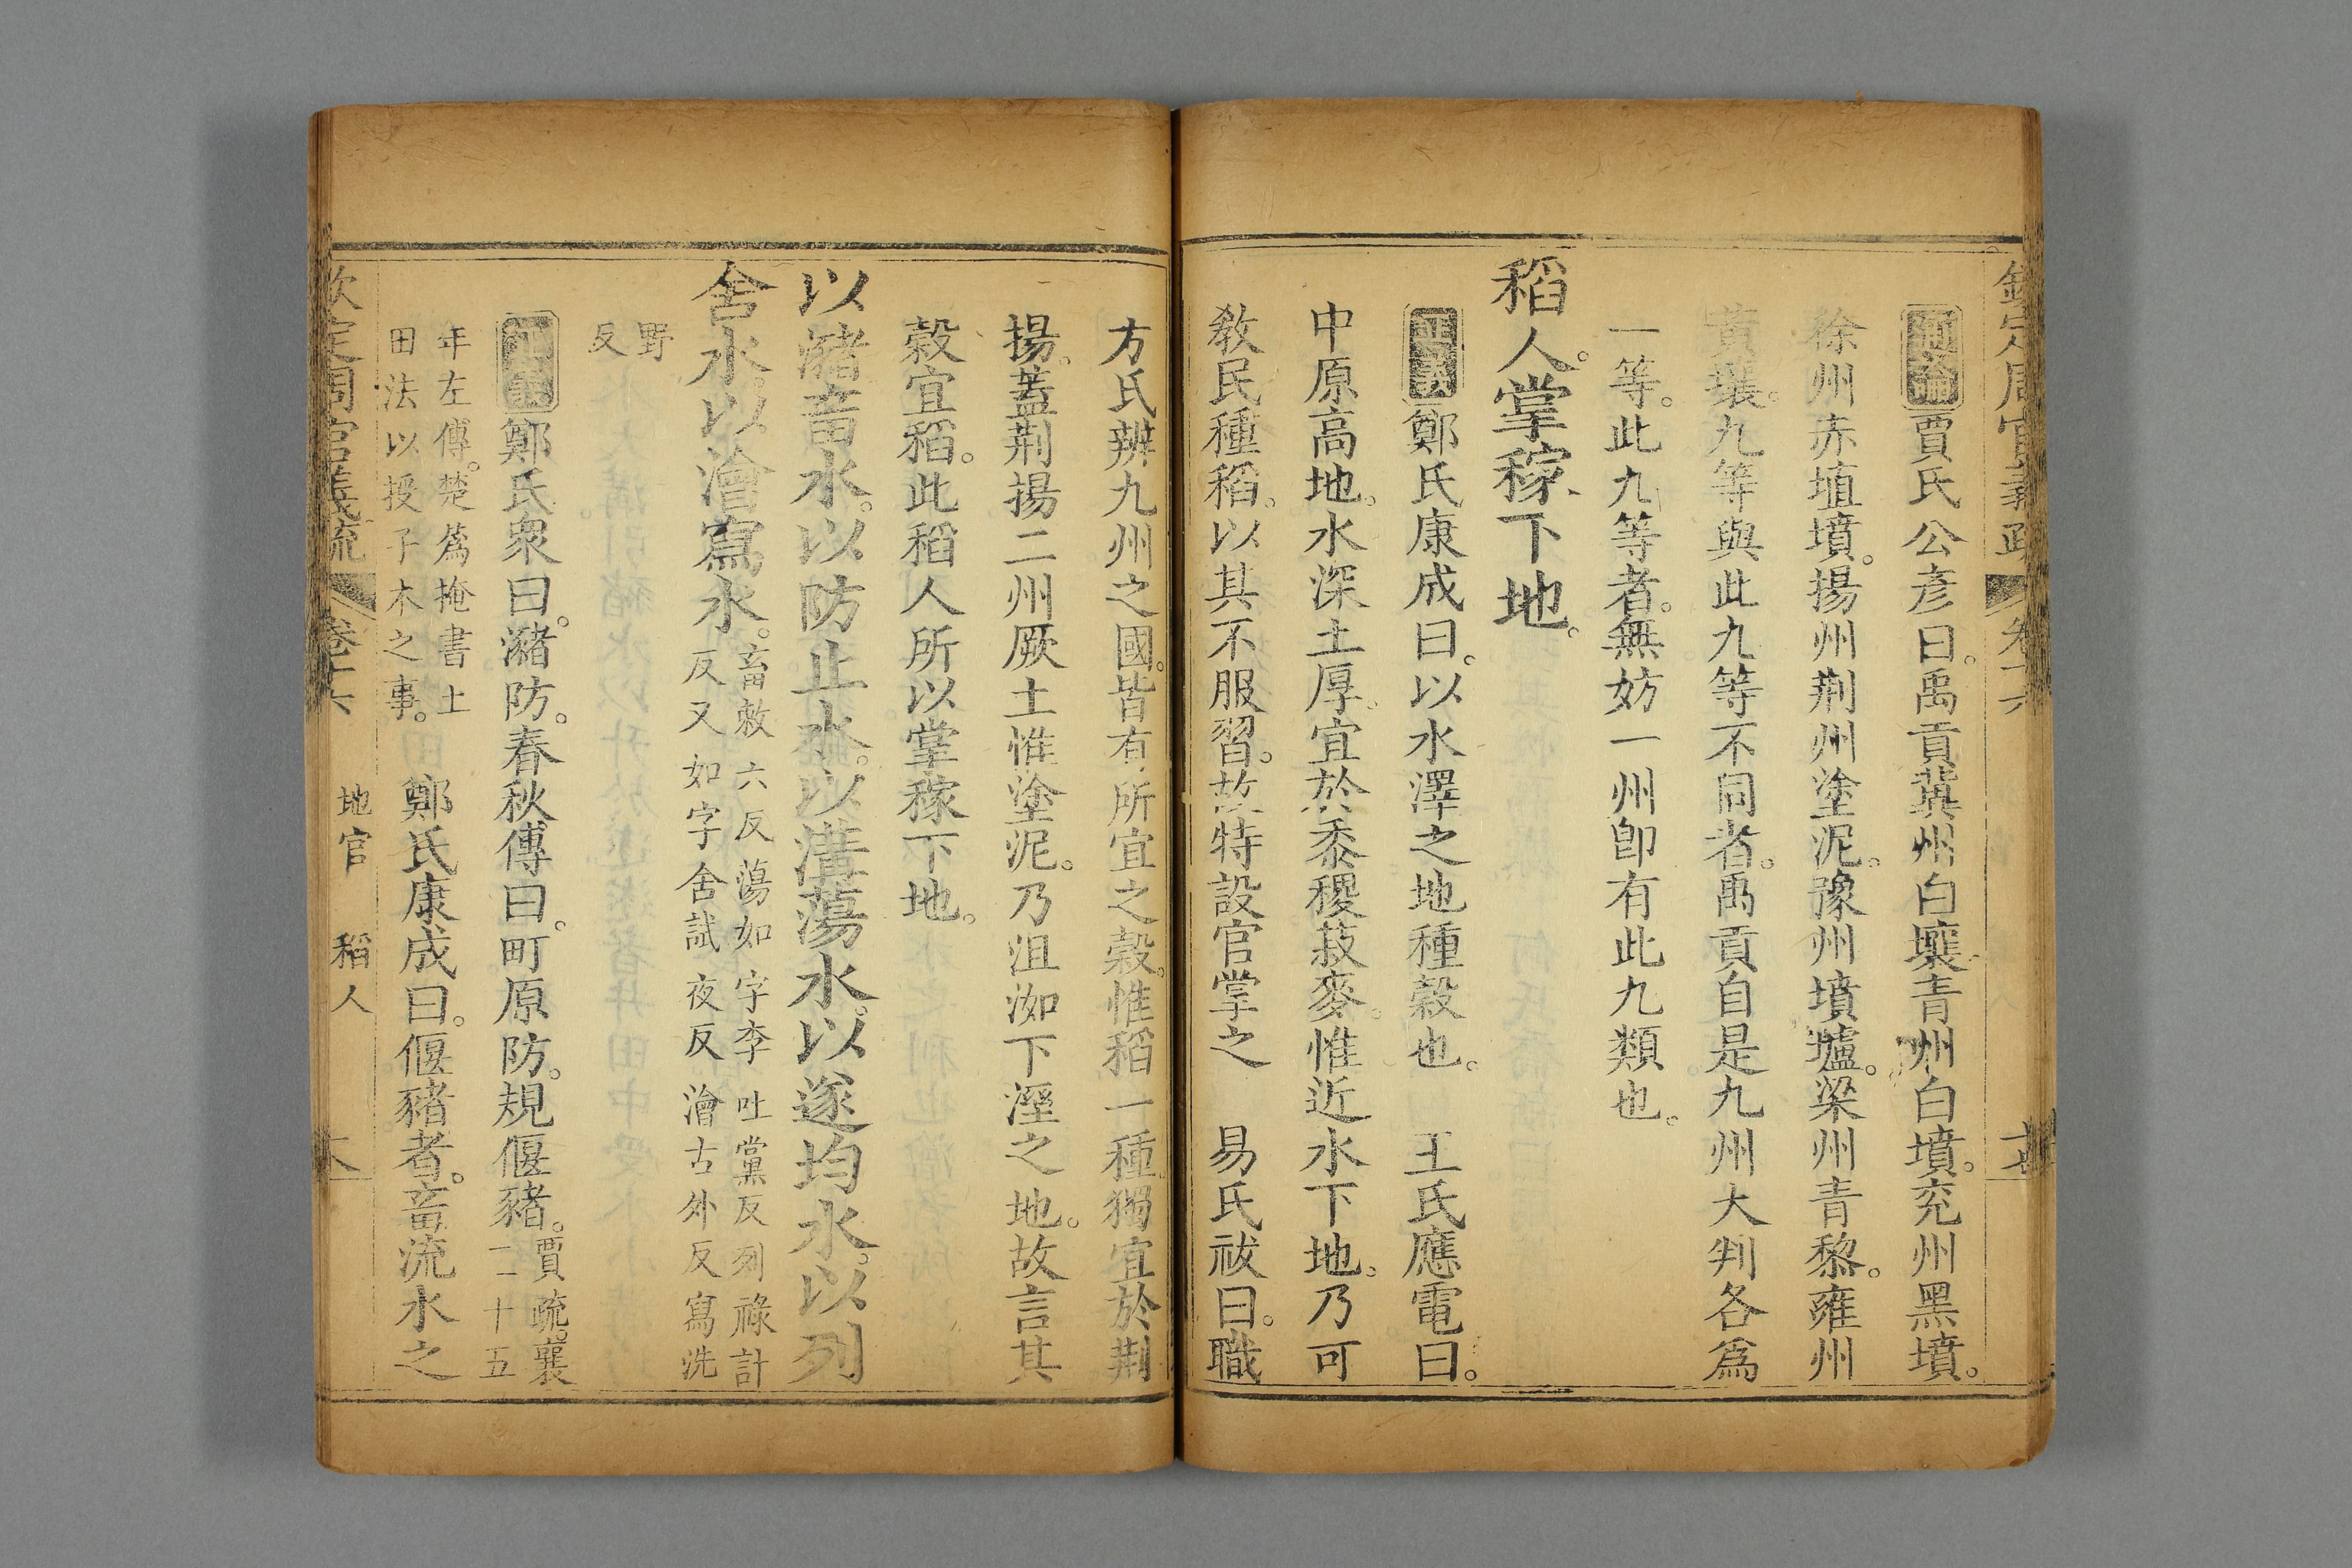 欽定周官義疏 卷十六
通論 賈氏公彦曰。禹貢冀州白壤青州白墳。兖州黑墳。
徐州赤埴墳。揚州荆州塗泥。豫州墳壚。梁州青黎。雍州
黄壤。九等與此九等不同者。禹貢自是九州大判各爲
一等。此九等者。無妨一州卽有此九類也。
稻人。掌稼下地。
正義 鄭氏康成曰。以水澤之地種穀也。 王氏應電曰。
中原高地。水深土厚。宜於黍稷菽麥。惟近水下地。乃可
敎民種稻。以其不服習。故特設官掌之 易氏祓曰。職
方氏辨九州之國。皆有所宜之穀。惟稻一種獨宜於荆
揚。蓋荆揚二州厥土惟塗泥。乃沮洳下溼之地。故言其
穀宜稻。此稻人所以掌稼下地。
以瀦畜水。以防止水。以溝蕩水。以遂均水。以列
舍水。以澮寫水。畜敕六反蕩如字李吐黨反列祿計
反又如字舍試夜反澮古外反寫洗
野
反
正義 鄭氏衆曰。瀦防。春秋傳曰。町原防。規偃豬。賈疏。襄
二十五
年左傳。楚蒍掩書土
田法以授子木之事。 鄭氏康成曰。偃豬者。畜流水之
欽定周官義疏 卷十六 地官 稻人